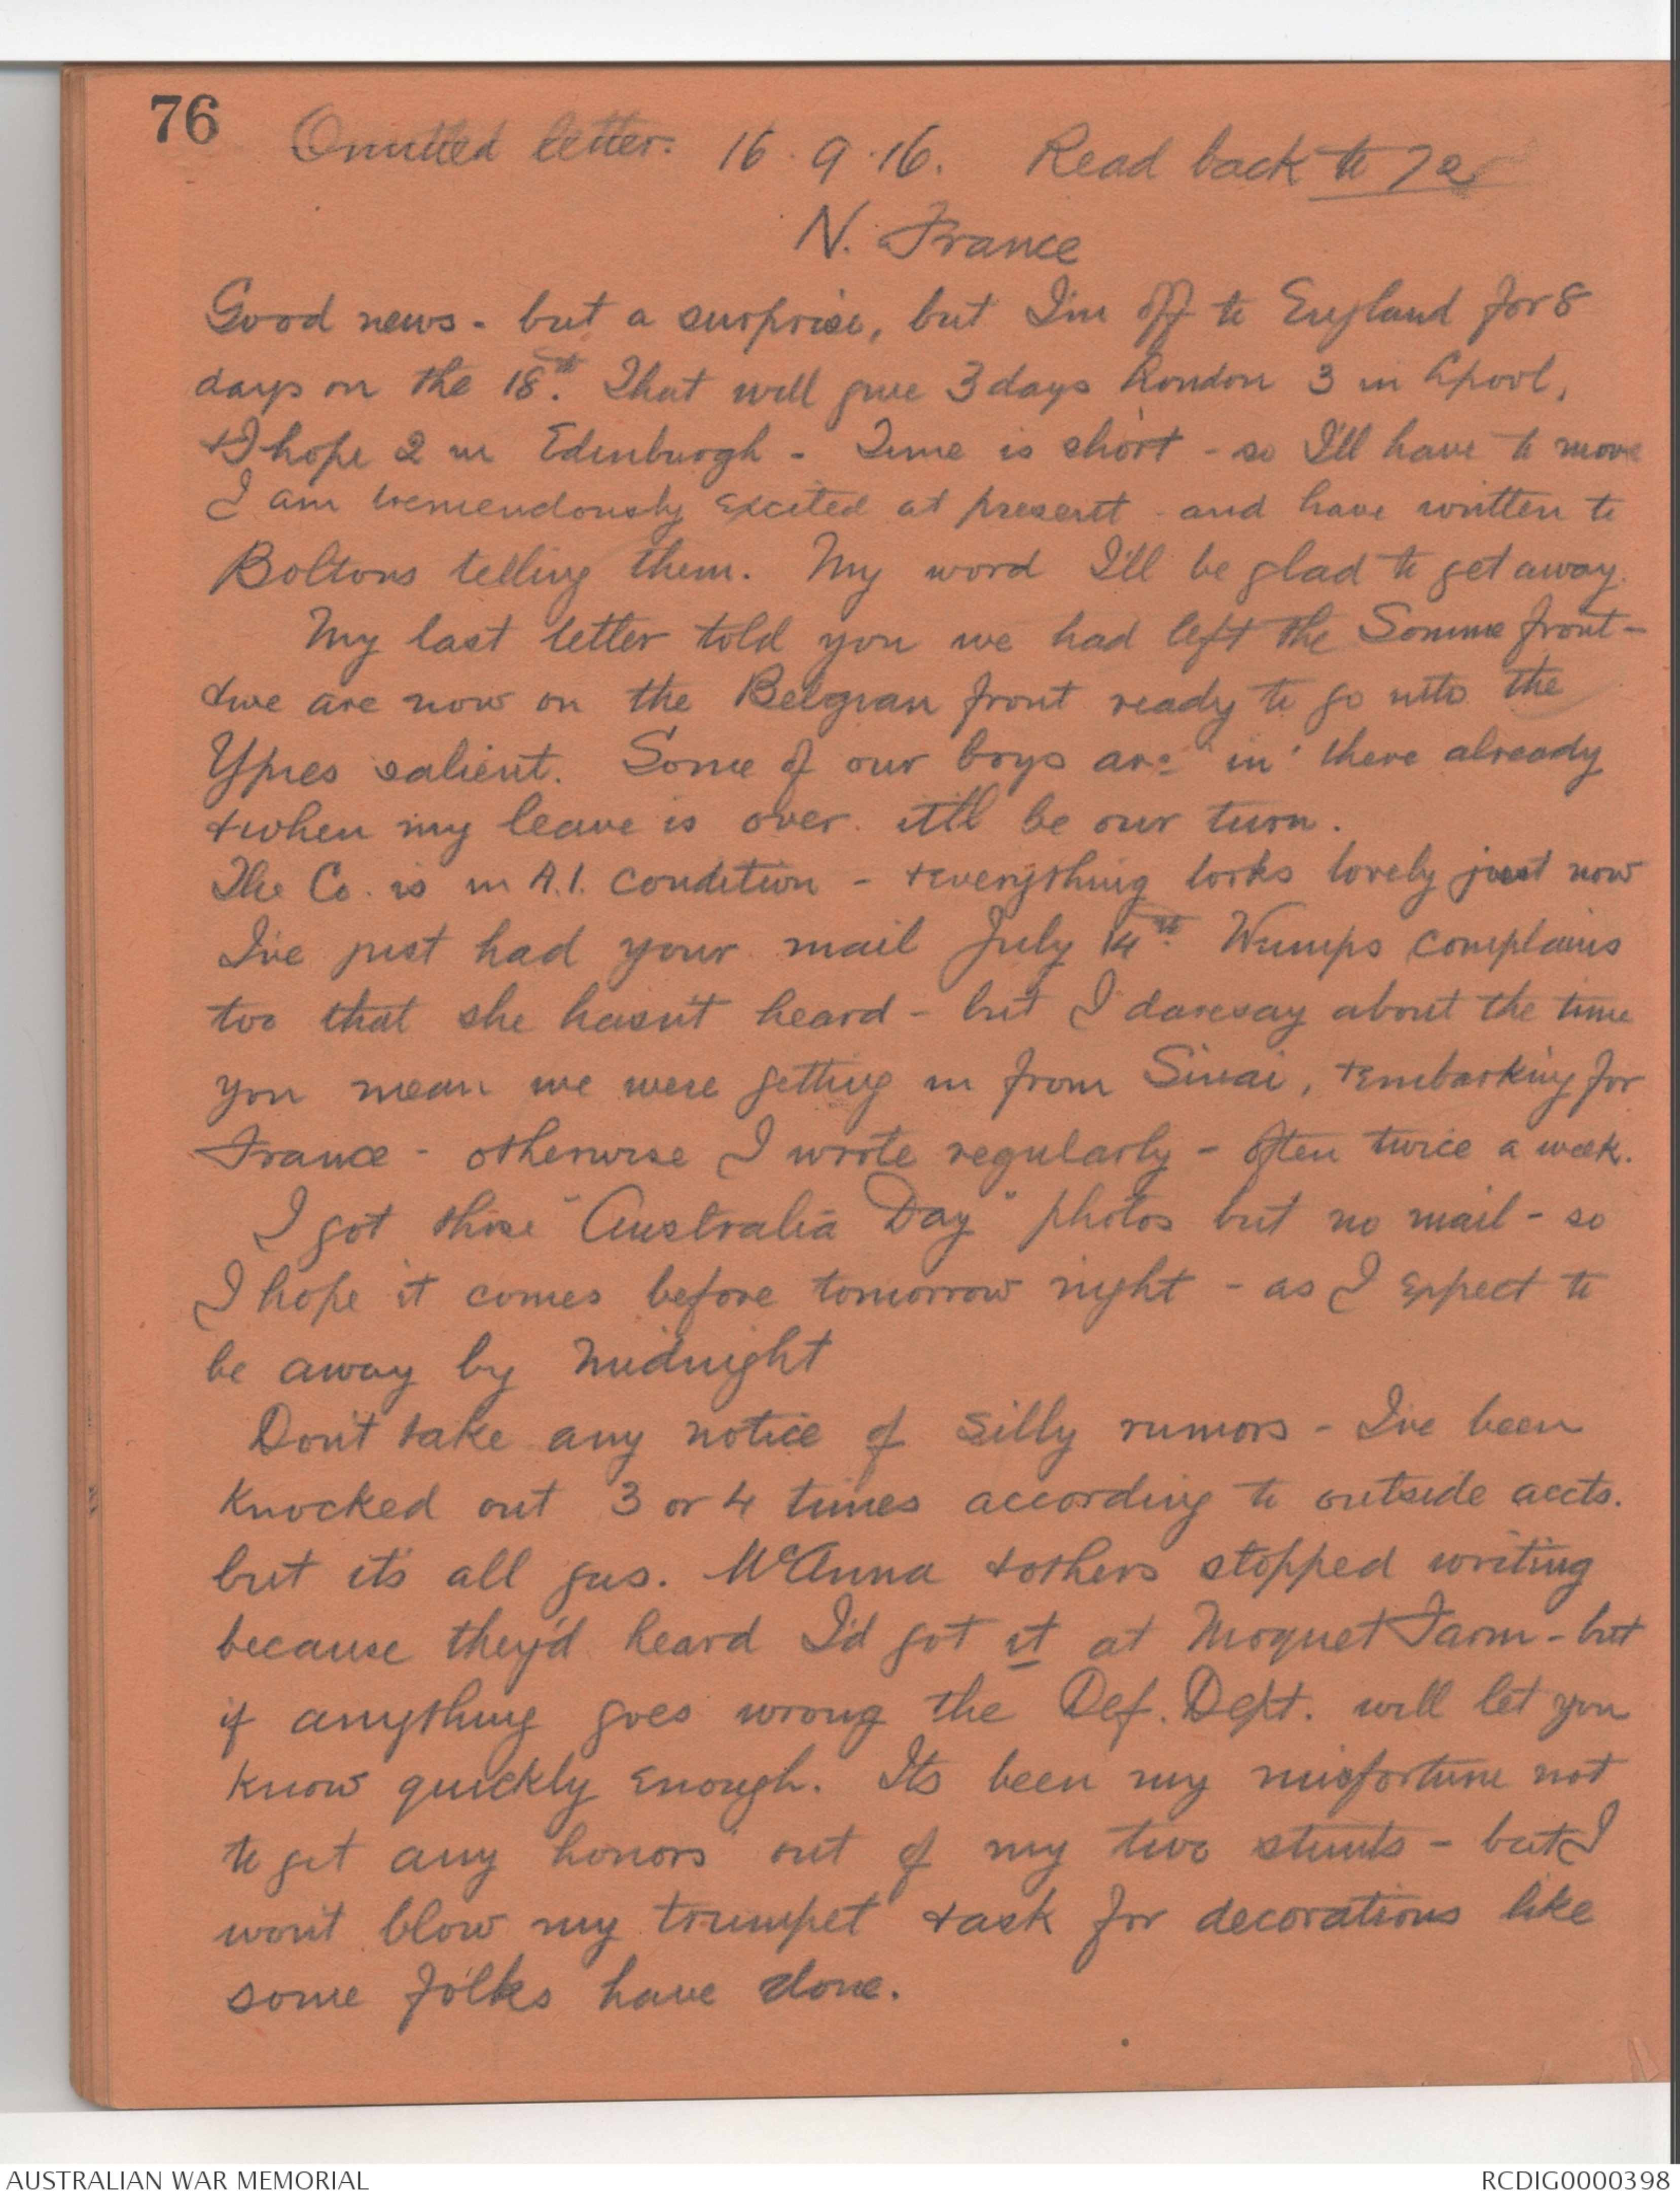 76
Omitted letter. 16.9.16. Read back to 72
N. France
Good news - but a surprise, but I'm off to England for 8
days on the 18th. That will give 3 days London 3 in Lpool,
+ I hope 2 in Edinburgh - Time is short - so I'll have to move
I am tremendously excited at present - and have written to
Boltons telling them. My word I'll be glad to get away.
My last letter told you we had left the Somme front -
+ we are now on the Belgian front ready to go into the
Ypres salient. Some of our boys are "in" there already
+ when my leave is over it'll be our turn.
The Co. is in A.1. condition - + everything looks lovely just now
I've just had your mail July 14th. Wumps complains
too that she hasn't heard - but I daresay about the time
you mean we were getting in from Sinai, + embarking for
France - otherwise I wrote regularly - often twice a week.
I got those "Australia Day" photos but no mail - so
I hope it comes before tomorrow night - as I expect to
be away by midnight
Don't take any notice of silly rumors - I've been
knocked out 3 or 4 times according to outside accts.
but it's all gas. McAnna + others stopped writing
because they'd heard I'd got it at Moquet Farm - but
if anything goes wrong the Def. Dept. will let you
know quickly enough. Its been my misfortune not
to get any "honors" out of my two stunts - but I
won't blow my trumpet + ask for decorations like
some folks have done.
AUSTRALIAN WAR MEMORIAL
RCDIG0000398